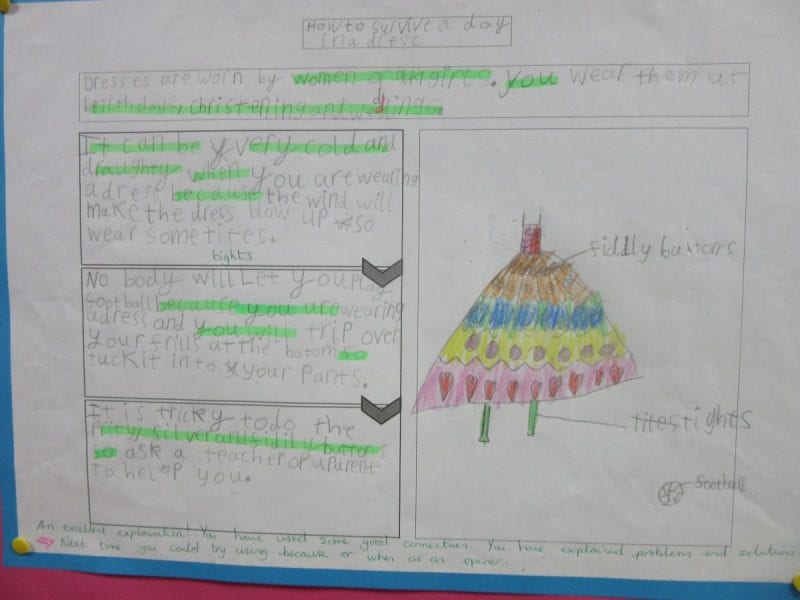 How to survive a day
in a dress
Dresses are worn by women or girls. you wear them at
birthdays, christening and weddings.
It can be very cold and
draughty when you are wearing
a dress because the wind will
make the dress blow up so
wear some tites.
tights
No body will Let you play
football because you are wearing
a dress and you will trip over
your frills at the bottom so
tuck it in to your pants.
It is tricky to do the
prity, silver and fidily buttons
so ask a teacher or a parent
to help you.
fiddly buttons
tites tights
football
An excellent explanation! You have used some good connectives. You have explained problems and solutions
Next time you could try using because or when as an opener.